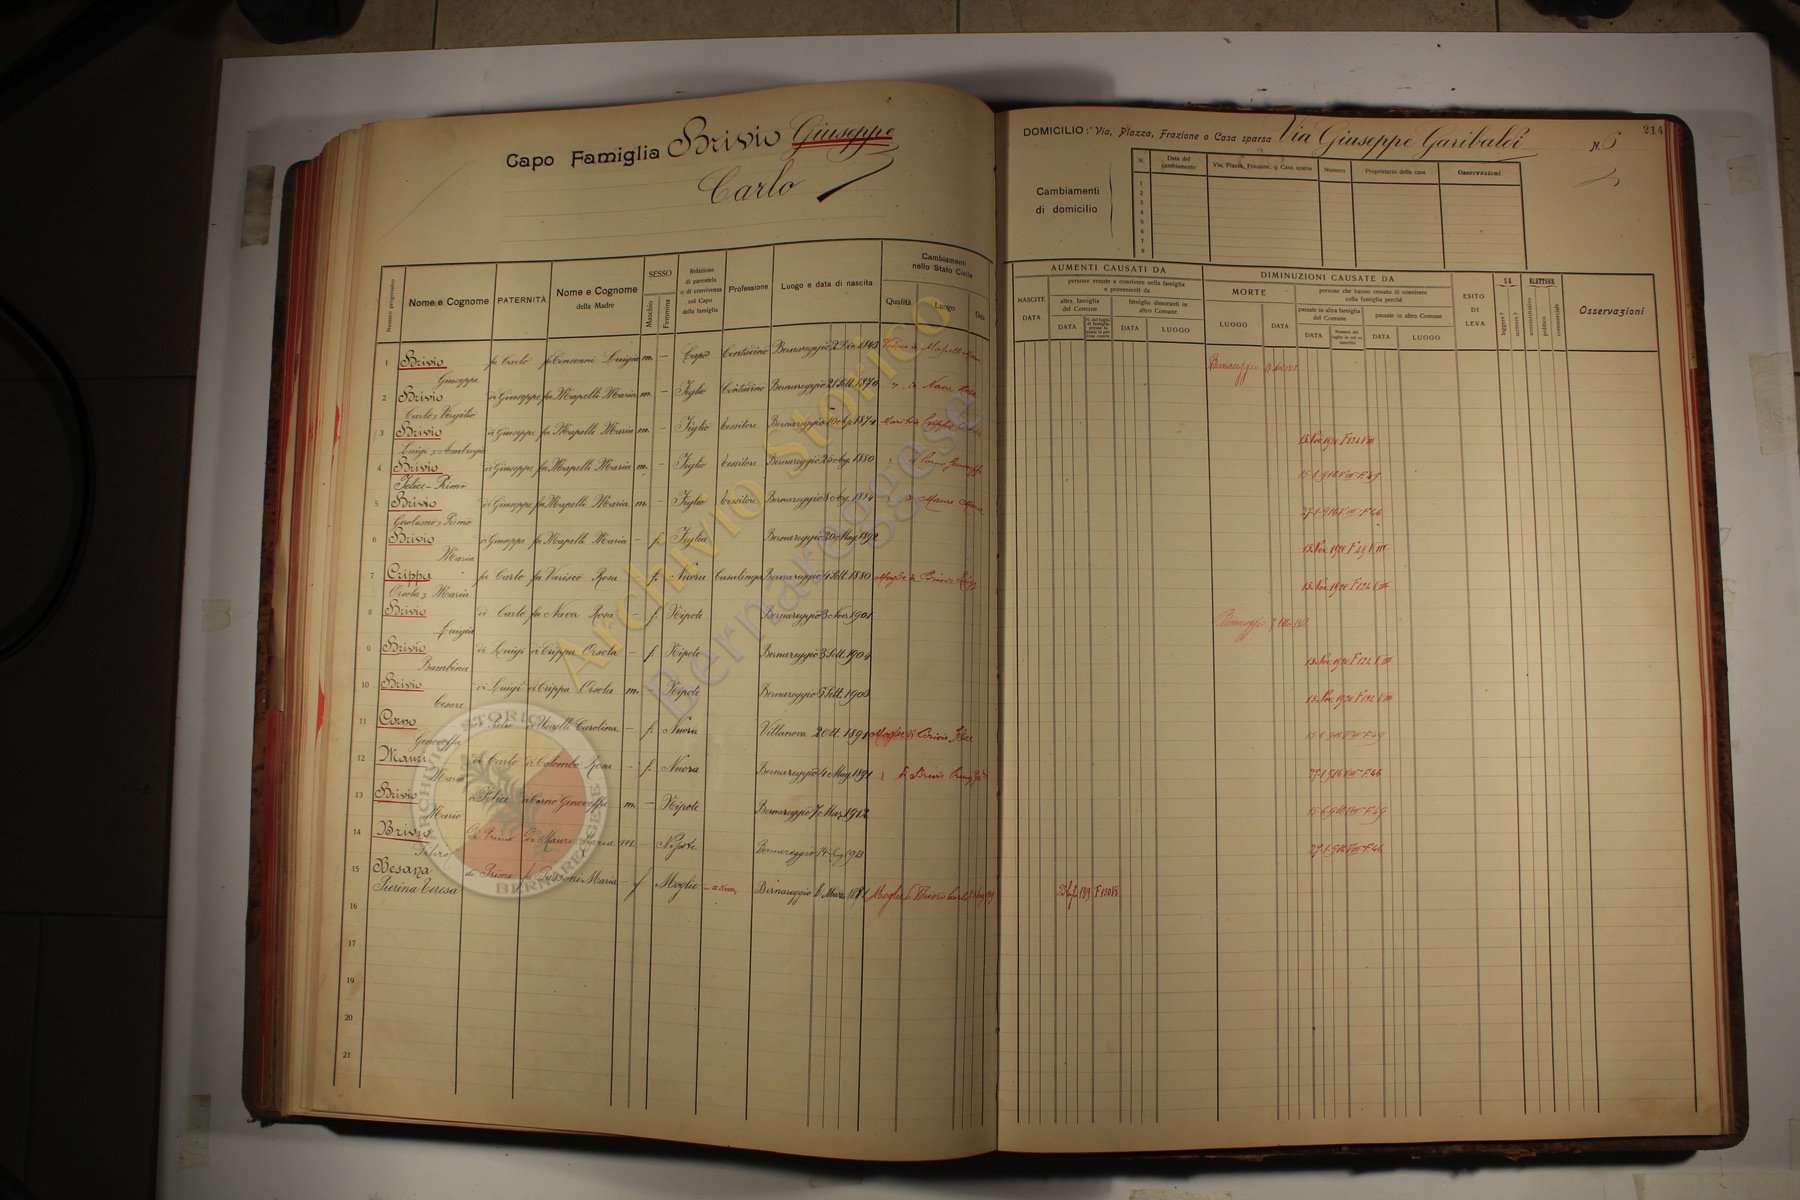 Capo Famiglia Brivio Giuseppe
Carlo
DOMICILIO: Via, Piazza, Frazione o Casa sparsa Via Giuseppe Garibaldi N. 6
214
Cambiamenti di domicilio
N. Data del cambiamento Via, Piazza, Frazione, o Casa sparsa Numero Proprietario della casa Osservazioni
1
2
3
4
5
6
7
8
Numero progressivo Nome e Cognome PATERNITÀ Nome e Cognome della Madre SESSO Maschio Femmina Relazione di parentela o di convivenza col Capo della famiglia Professione Luogo e data di nascita Cambiamenti nello Stato Civile Qualità Luogo Data
AUMENTI CAUSATI DA
NASCITE DATA
persone venute a convivere nella famiglia e provenienti da
altra famiglia del Comune DATA
famiglie dimoranti in altro Comune DATA LUOGO
DIMINUZIONI CAUSATE DA
MORTE LUOGO DATA
persone che hanno cessato di convivere colla famiglia perchè
passate in altra famiglia del Comune DATA
passate in altro Comune DATA LUOGO
ESITO DI LEVA
SA leggere? scrivere?
ELETTORE amministrativo politico commerciale
Osservazioni
1 Brivio Giuseppe fu Carlo fu Consonni Luigia m. – Capo Contadino Bernareggio 2 1843 Vedovo di Mapelli Bernareggio
2 Brivio Carlo Virgilio di Giuseppe fu Mapelli Maria m. – Figlio Contadino Bernareggio 21 Sett. 1870 di Nava Rosa
3 Brivio Luigi Ambrogio di Giuseppe fu Mapelli Maria m. – Figlio tessitore Bernareggio 1874 Crippa 15 Nov. 1920 F 124 VIII
4 Brivio Felice Primo di Giuseppe fu Mapelli Maria m. – Figlio tessitore Bernareggio 25 1880 F. 49
5 Brivio Girolamo Primo di Giuseppe fu Mapelli Maria m. – Figlio tessitore Bernareggio 8 1884 27-1-916 VIII F. 46
6 Brivio Maria di Giuseppe fu Mapelli Maria – f. Figlia Bernareggio 20 Mag. 1892 15 Nov. 1920 F 49 VIII
7 Crippa Orsola Maria fu Carlo fu Varisco Rosa – f. Nuora Casalinga Bernareggio 4 Sett. 1880 Moglie di Brivio Luigi 15 Nov. 1920 F 124 VIII
8 Brivio Luigia di Carlo fu Nava Rosa – f. Nipote Bernareggio 3 Nov. 1901 Bernareggio
9 Brivio Bambina di Luigi di Crippa Orsola – f. Nipote Bernareggio 3 Sett. 1904 15 Nov. 1920 F 124 VIII
10 Brivio Cesare di Luigi di Crippa Orsola m. Nipote Bernareggio 5 Sett. 1908 15 Nov. 1920 F 124 VIII
11 Corno Genoveffa di Pietro di Carolina – f. Nuora Villanova 2 Ott. 1891 Moglie di Brivio Felice F. 49
12 Mauri Maria di Carlo di Colombo Rosa – f. Nuora Bernareggio 4 Mag. 1891 di Brivio 27-1-916 VIII F. 46
13 Brivio Mario di Felice di Corno Genoveffa m. – Nipote Bernareggio 7 Mar. 1912 F. 49
14 Brivio di Primo di Mauri Maria m – Nipote Bernareggio 14 1913 27-1-916 VIII F. 46
15 Besana Pierina Teresa di Primo fu Maria – f Moglie Bernareggio 6 Marzo Moglie di Brivio Carlo
16
17
18
19
20
21
Archivio Storico
Bernareggese
ARCHIVIO STORICO BERNAREGGESE